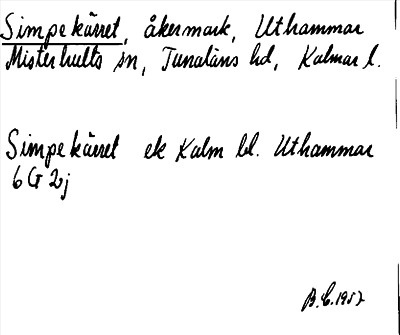 Simpekärret, åkermark, Uthammar
Misterhults sn, Tunaläns hd, Kalmar l.
Simpekärret ek Kalm bl. Uthammar
6 G 2j
B.E. 1957